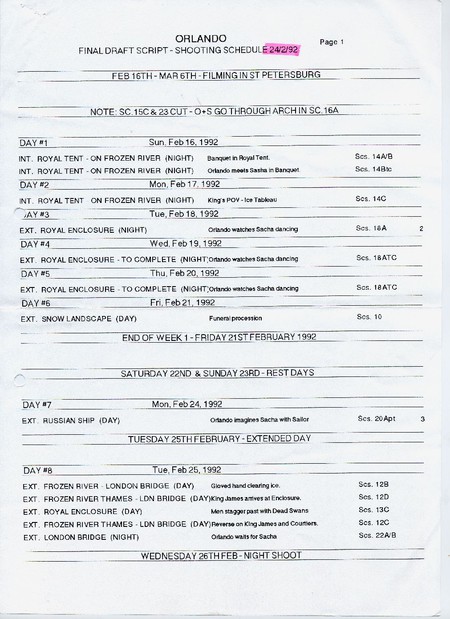 ORLANDO
Page 1
FINAL DRAFT SCRIPT - SHOOTING SCHEDULE 24/2/92
FEB 16TH - MAR 6TH - FILMING IN ST PETERSBURG
NOTE: SC.15C & 23 CUT - O+S GO THROUGH ARCH IN SC.16A
DAY #1 Sun, Feb 16, 1992
INT. ROYAL TENT - ON FROZEN RIVER (NIGHT) Banquet in Royal Tent. Scs. 14A/B
INT. ROYAL TENT - ON FROZEN RIVER (NIGHT) Orlando meets Sasha in Banquet Scs. 14Btc
DAY #2 Mon, Feb 17, 1992
INT. ROYAL TENT ON FROZEN RIVER (NIGHT) King's POV - Ice Tableau Scs. 14C
DAY #3 Tue, Feb 18, 1992
EXT. ROYAL ENCLOSURE (NIGHT) Orlando watches Sacha dancing Scs. 18A 2
DAY #4 Wed, Feb 19, 1992
EXT. ROYAL ENCLOSURE - TO COMPLETE (NIGHT) Orlando watches Sacha dancing Scs. 18ATC
DAY #5 Thu, Feb 20, 1992
EXT. ROYAL ENCLOSURE - TO COMPLETE (NIGHT) Orlando watches Sacha dancing Scs. 18ATC
DAY #6 Fri, Feb 21, 1992
EXT. SNOW LANDSCAPE (DAY) Funeral procession Scs. 10
END OF WEEK 1 - FRIDAY 21ST FEBRUARY 1992
SATURDAY 22ND & SUNDAY 23RD - REST DAYS
DAY #7 Mon, Feb 24, 1992
EXT. RUSSIAN SHIP (DAY) Orlando imagines Sacha with Sailor Scs. 20Apt 3
TUESDAY 25TH FEBRUARY - EXTENDED DAY
DAY #8 Tue, Feb 25, 1992
EXT. FROZEN RIVER - LONDON BRIDGE (DAY) Gloved hand clearing ice. Scs. 12B
EXT. FROZEN RIVER THAMES - LDN BRIDGE (DAY) King James arrives at Enclosure. Scs. 12D
EXT. ROYAL ENCLOSURE (DAY) Men stagger past with Dead Swans Scs. 13C
EXT. FROZEN RIVER THAMES - LDN BRIDGE (DAY) Reverse on King James and Courtiers. Scs. 12C
EXT. LONDON BRIDGE (NIGHT) Orlando waits for Sacha Scs. 22A/B
WEDNESDAY 26TH FEB - NIGHT SHOOT